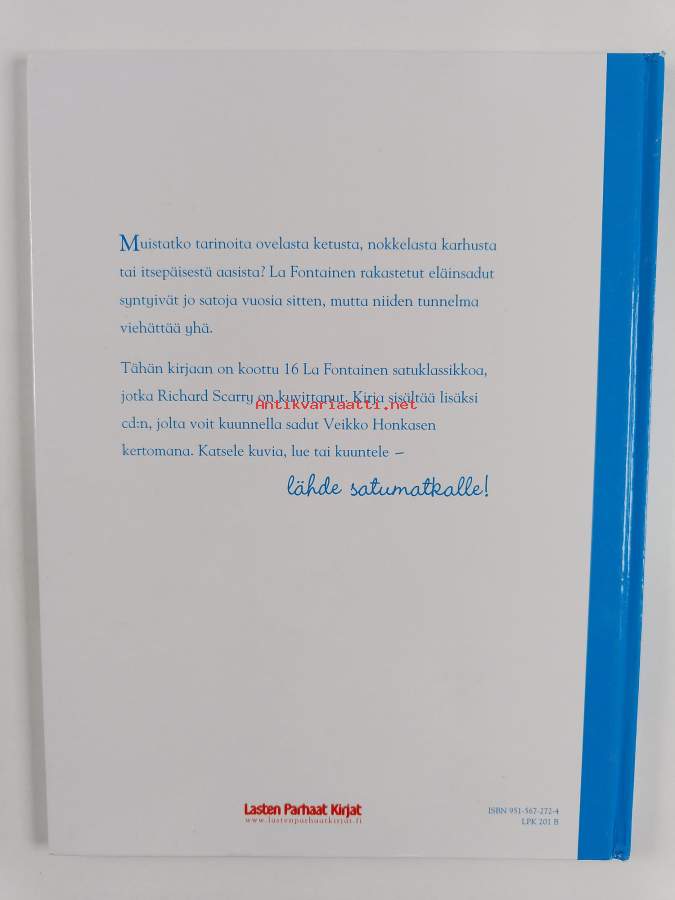 Muistatko tarinoita ovelasta ketusta, nokkelasta karhusta
tai itsepäisestä aasista? La Fontainen rakastetut eläinsadut
syntyivät jo satoja vuosia sitten, mutta niiden tunnelma
viehättää yhä.
Tähän kirjaan on koottu 16 La Fontainen satuklassikkoa,
jotka Richard Scarry on kuvittanut. Kirja sisältää lisäksi
Antikvariaatti.net
cd:n, jolta voit kuunnella sadut Veikko Honkasen
kertomana. Katsele kuvia, lue tai kuuntele –
lähde satumatkalle!
Lasten Parhaat Kirjat
www.lastenparhaatkirjat.fi
ISBN 951-567-272-4
LPK 201 B